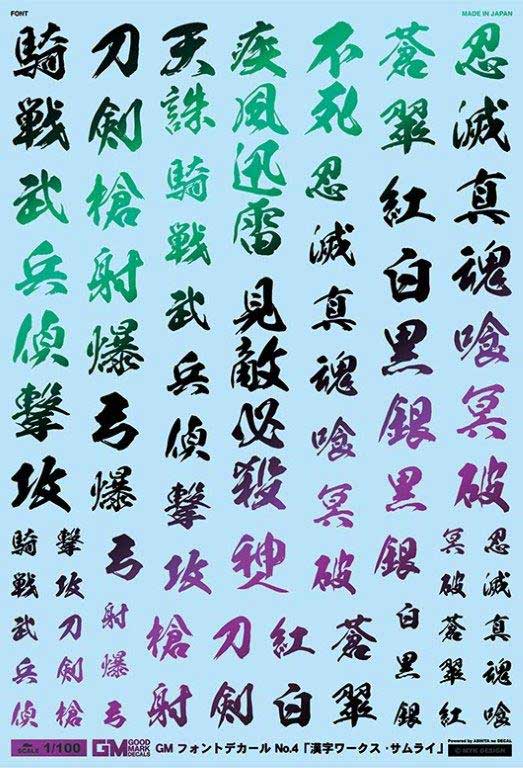 FONT
MADE IN JAPAN
忍滅真魂喰冥破
蒼翠紅白黒銀黒銀
不死忍滅真魂喰冥破
疾風迅雷見敵必殺神
天誅騎戦武兵偵撃攻
刀剣槍射爆弓爆弓
騎戦武兵偵撃攻
忍滅真魂喰
冥破蒼翠紅
白黒銀
蒼翠
紅白
刀剣
槍射
射爆弓
撃攻刀剣槍
騎戦武兵偵
SCALE 1/100
GM GOOD MARK DECALS
GM フォントデカール No.4「漢字ワークス・サムライ」
© MYK DESIGN